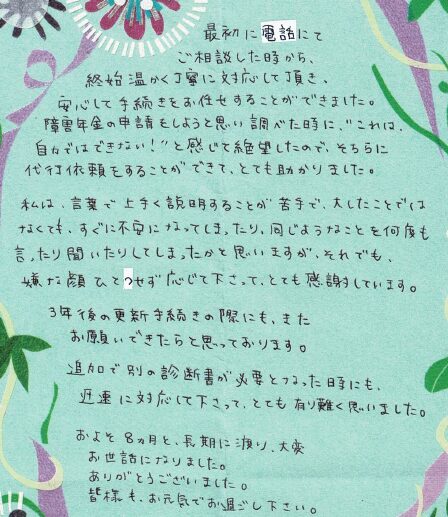 最初に電話にて
ご相談した時から、
終始温かく丁寧に対応して頂き、
安心して手続きをお任せすることができました。
障害年金の申請をしようと思い調べた時に、"これは、
自力ではできない!"と感じて絶望したので、そちらに
代行依頼をすることができて、とても助かりました。
私は、言葉で上手く説明することが苦手で、大したことでは
なくても、すぐに不安になってしまったり、同じようなことを何度も
言ったり聞いたりしてしまったかと思いますが、それでも、
嫌な顔ひとつせず応じて下さって、とても感謝しています。
3年後の更新手続きの際にも、また
お願いできたらと思っております。
追加で別の診断書が必要となった時にも、
迅速に対応して下さって、とても有り難く思いました。
およそ8ヵ月と、長期に渡り、大変
お世話になりました。
ありがとうございました。
皆様も、お元気でお過ごし下さい。